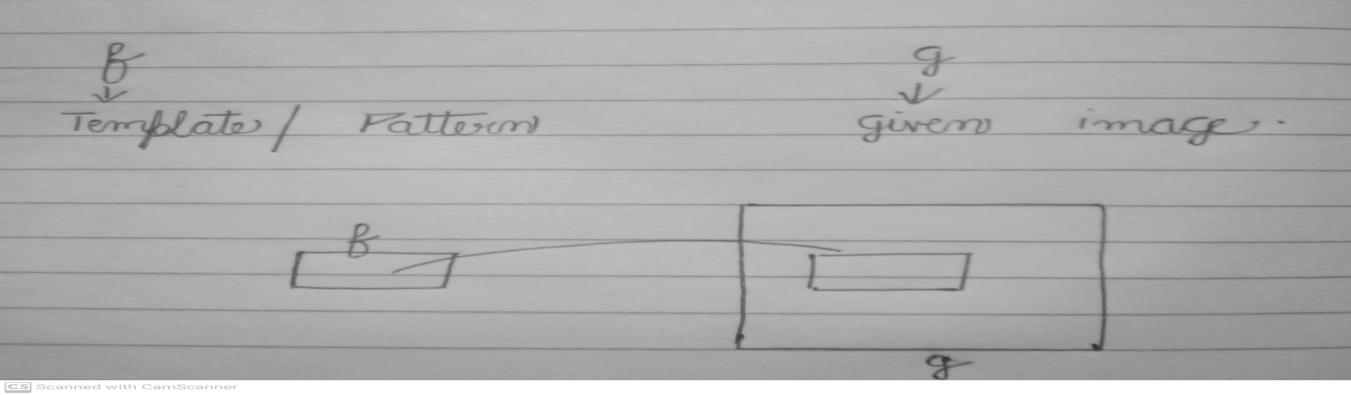 f g
↓ ↓
Template/ Pattern given image.
f
g
CS Scanned with CamScanner